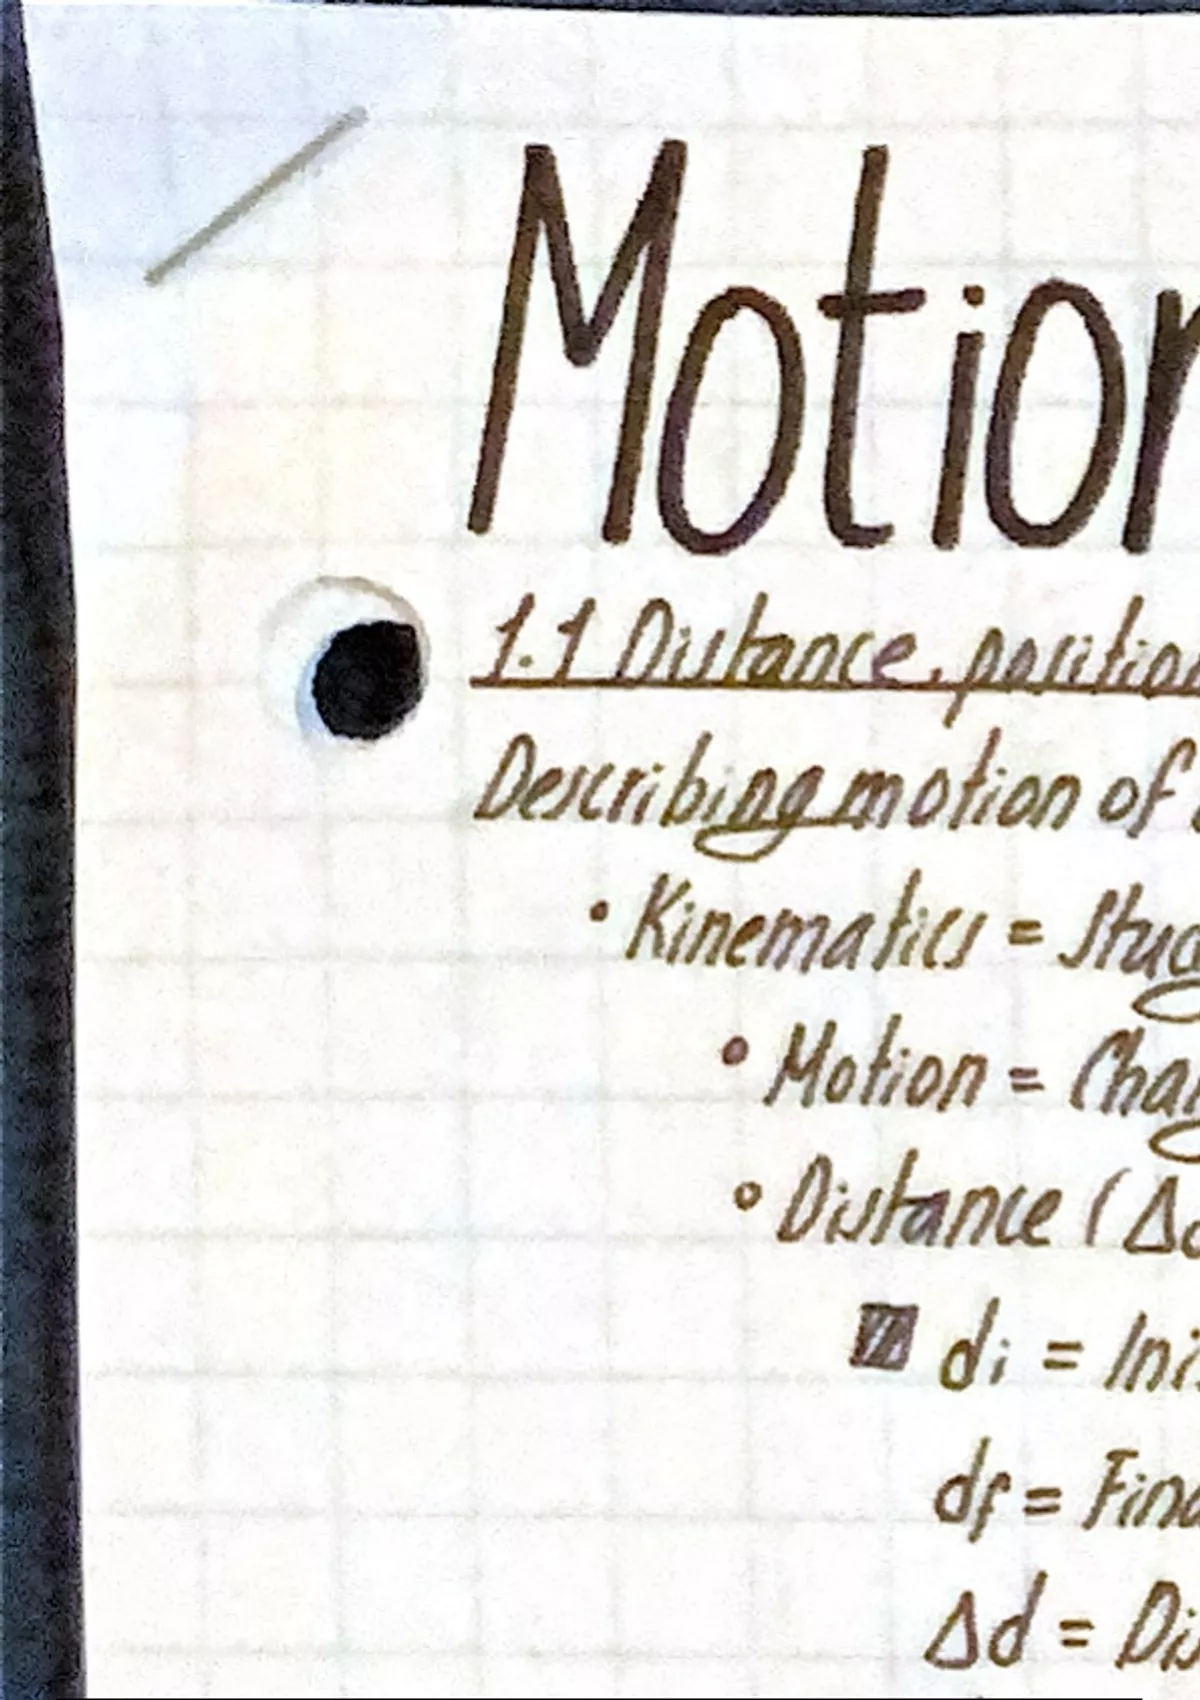 Motion
1.1 Distance, position
Describing motion of
• Kinematics = Stud
• Motion = Chan
° Distance (Δd
di = Ini
df = Fina
Δd = Dis